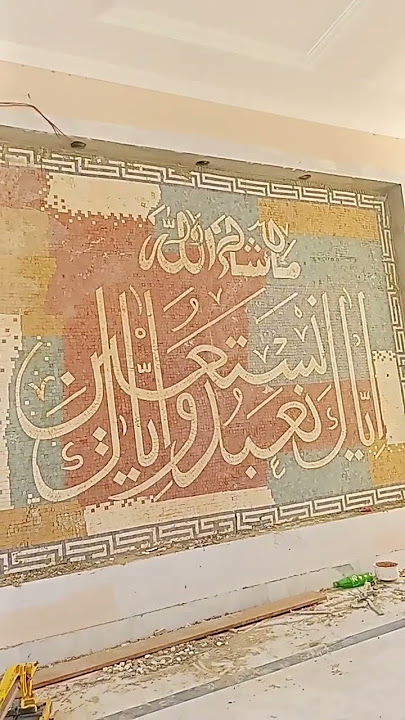 ما شاء الله
إياك نعبد وإياك نستعين